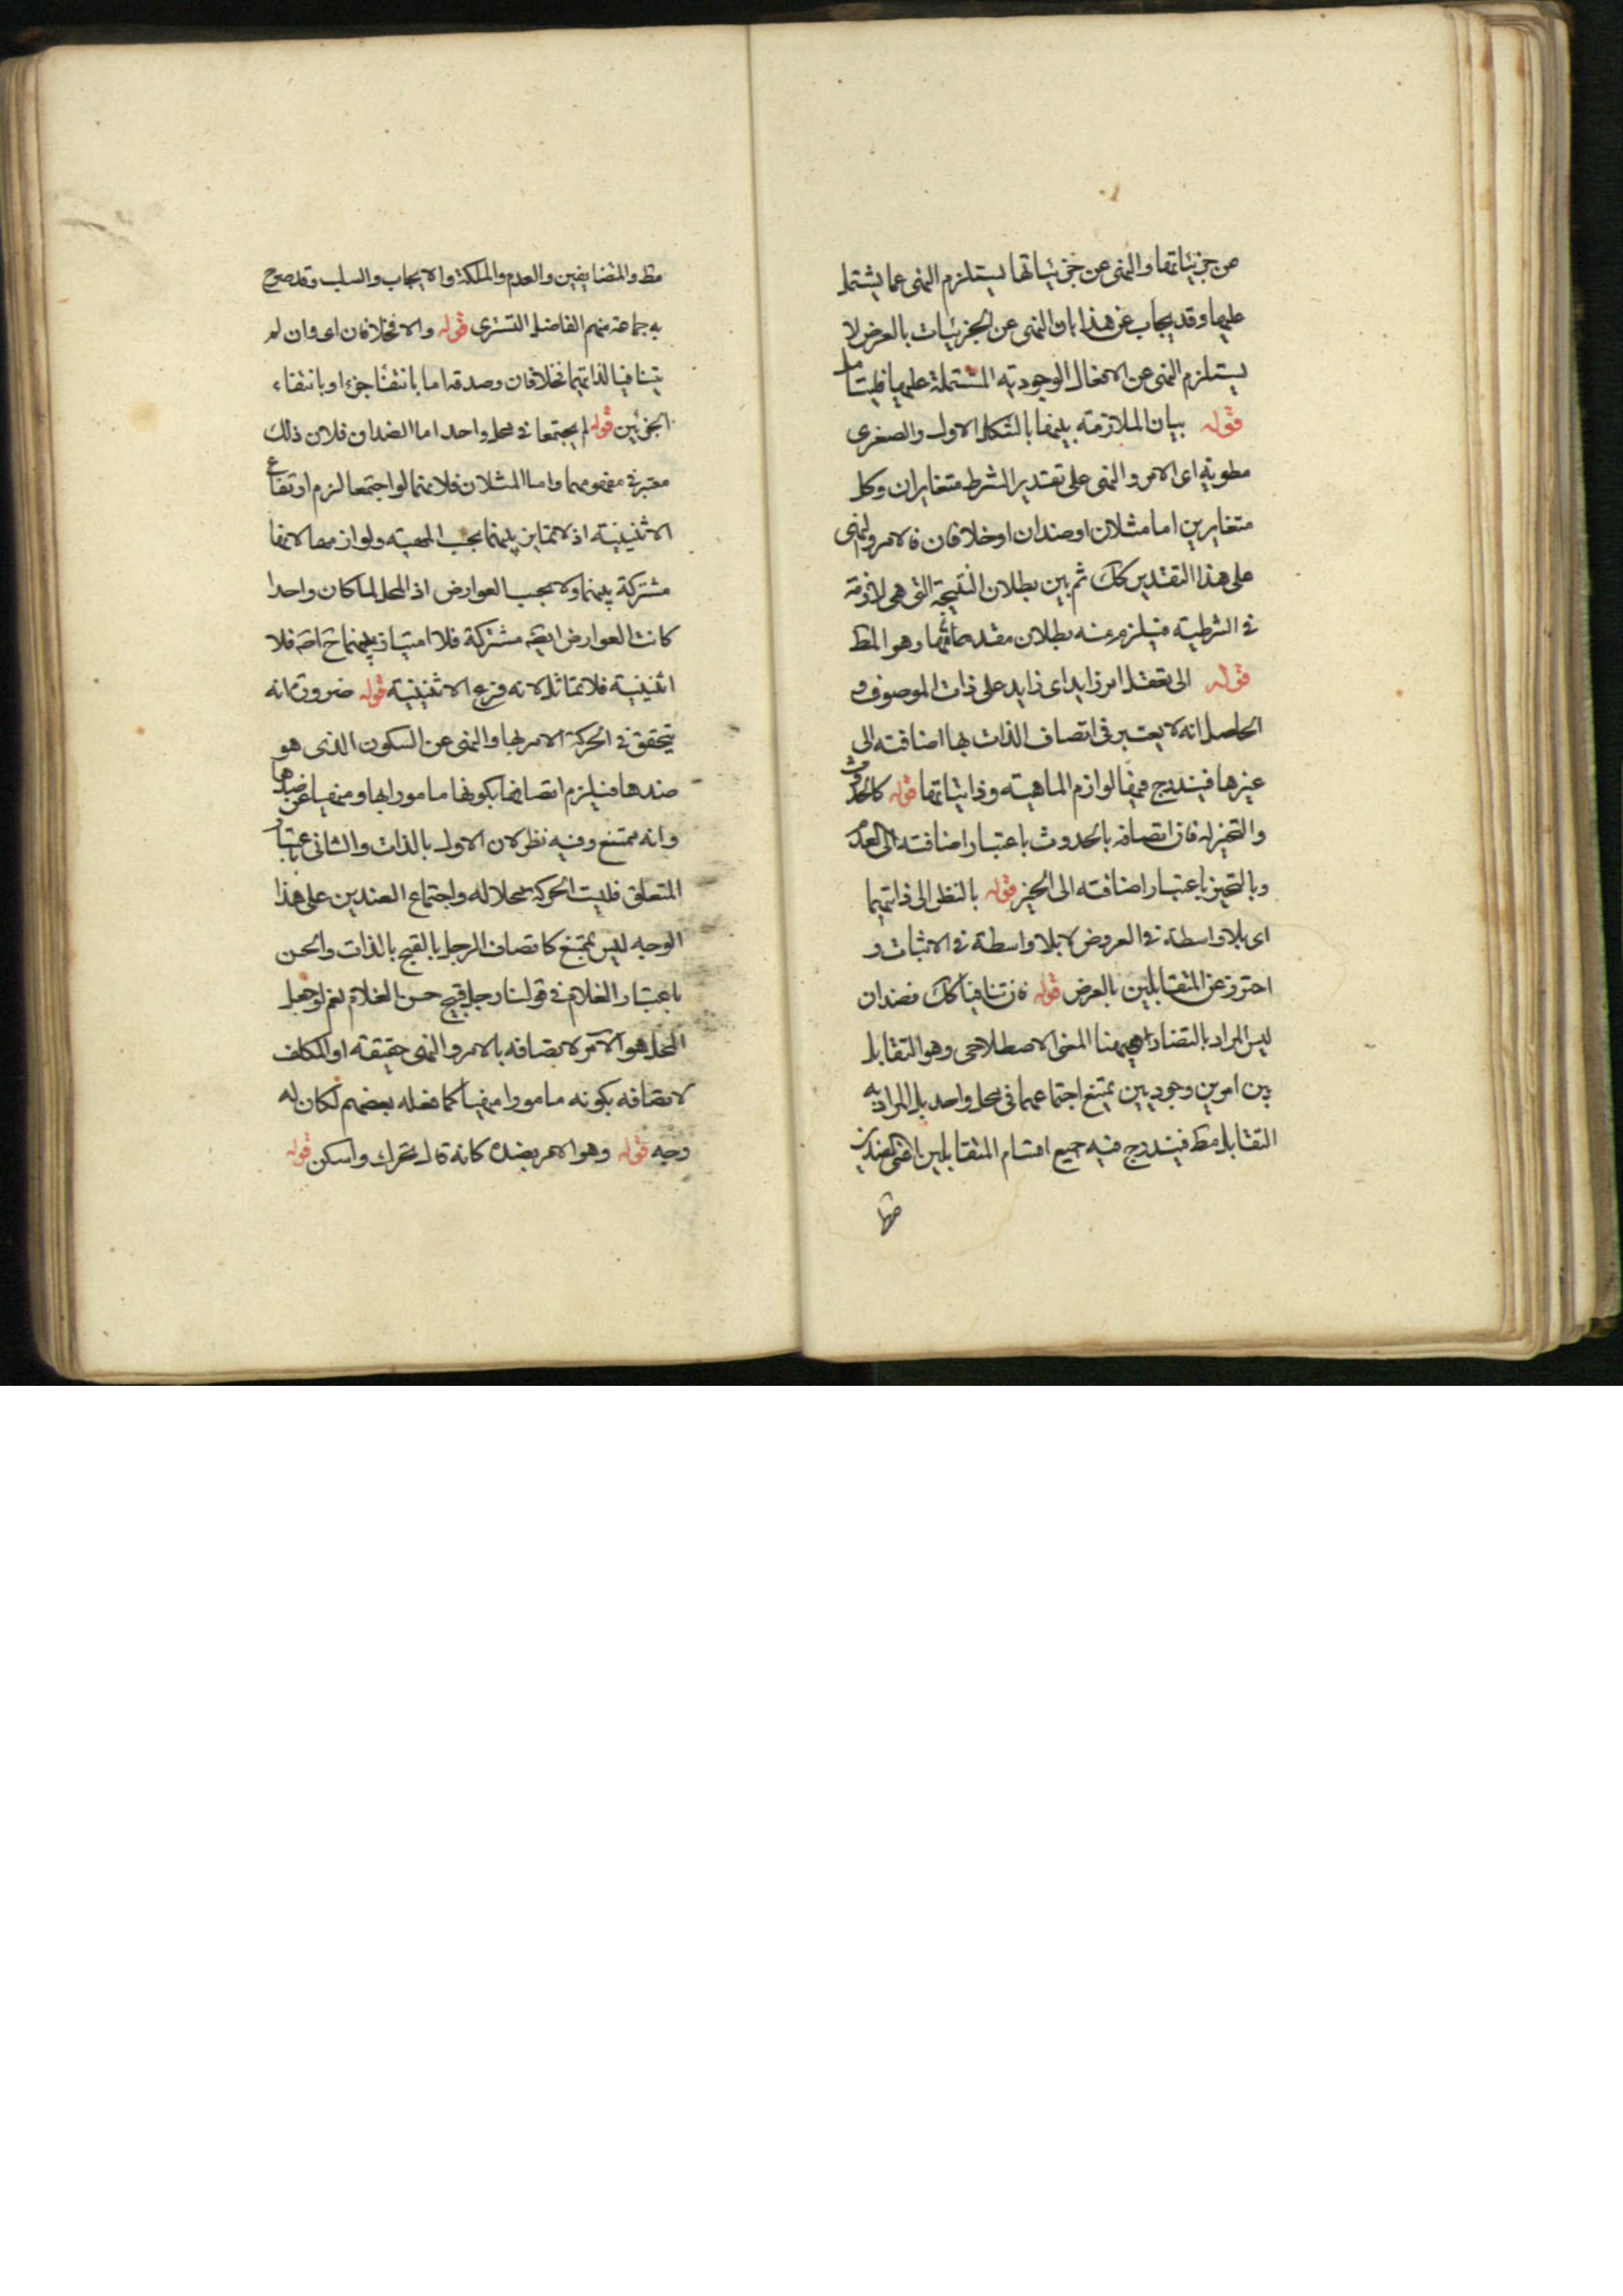 من جزئياتها والنهى عن جزئياتها يستلزم النهى عما يشتمل
عليها وقد يجاب عن هذا بان النهى عن الجزئيات بالعرض لا
يستلزم النهى عن الافعال الوجودية المشتملة عليها فليتامل
قوله بيان الملازمة بينهما بالشكل الاول والصغرى
مطوية اى الامر والنهى على تقدير الشرط متغايران وكل
متغايرين اما مثلان او ضدان او خلافان فالامر والنهى
على هذا التقدير كك ثم بين بطلان النتيجة التى هى لازمة
فى الشرطية فيلزم منه بطلان مقدمها وهو المط
قوله الى تعقل امر زايد اى زايد على ذات الموصوف و
الحاصل انه لا يعتبر فى اتصاف الذات بها اضافته الى
غيرها فيندرج فيها لوازم الماهية وذاتياتها قوله كالحدوث
والتحيز له فان اتصافه بالحدوث باعتبار اضافته الى العدم
وبالتحيز باعتبار اضافته الى الحيز قوله بالنظر الى ذاتيهما
اى بلا واسطة فى العروض لا بلا واسطة فى الاثبات و
احترز عن المتقابلين بالعرض قوله فان تنافيا كك فضدان
ليس المراد بالتضاد ههنا المعنى الاصطلاحى وهو التقابل
بين امرين وجوديين يمتنع اجتماعهما فى محل واحد بل المراد به
التقابل مط فيندرج فيه جميع اقسام المتقابلين اعنى الضدين
مط والمتضايفين والعدم والملكة والايجاب والسلب وقد صرح
به جماعة منهم الفاضل التسترى قوله والا فخلافان اى وان لم
يتنافيا لذاتيهما فخلافان وصدقه اما بانتفاء جزء او بانتفاء
الجزئين قوله لم يجتمعا فى محل واحد اما الضدان فلان ذلك
معتبر فى مفهومهما واما المثلان فلانهما لو اجتمعا لزم ارتفاع
الاثنينية اذ لا تمايز بينهما بحسب المهية ولوازمها لانها
مشتركة بينهما ولا بحسب العوارض اذ المحل لما كان واحدا
كانت العوارض ايضه مشتركة فلا امتياز بينهما ح اصه فلا
اثنينية فلا تماثل لانه فرع الاثنينية قوله ضرورة انه
يتحقق فى الحركة الامر بها والنهى عن السكون الذى هو
ضدها فيلزم اتصافها بكونها مامورا بها ومنهيا عن ضدها
وانه ممتنع وفيه نظر لان الاول بالذات والثانى باعتبار
المتعلق فليت الحركة محلا له واجتماع الضدين على هذا
الوجه ليس بممتنع كاتصاف الرجل بالقبح بالذات والحسن
باعتبار الغلام فى قولنا رجل قبيح حسن الغلام نعم لو جعل
المحل هو الآمر لاتصافه بالامر والنهى حقيقة او المكلف
لاتصافه بكونه مامورا منهيا كما فعله بعضهم لكان له
وجه قوله وهو الامر بضده كانه قال تحرك واسكن قوله